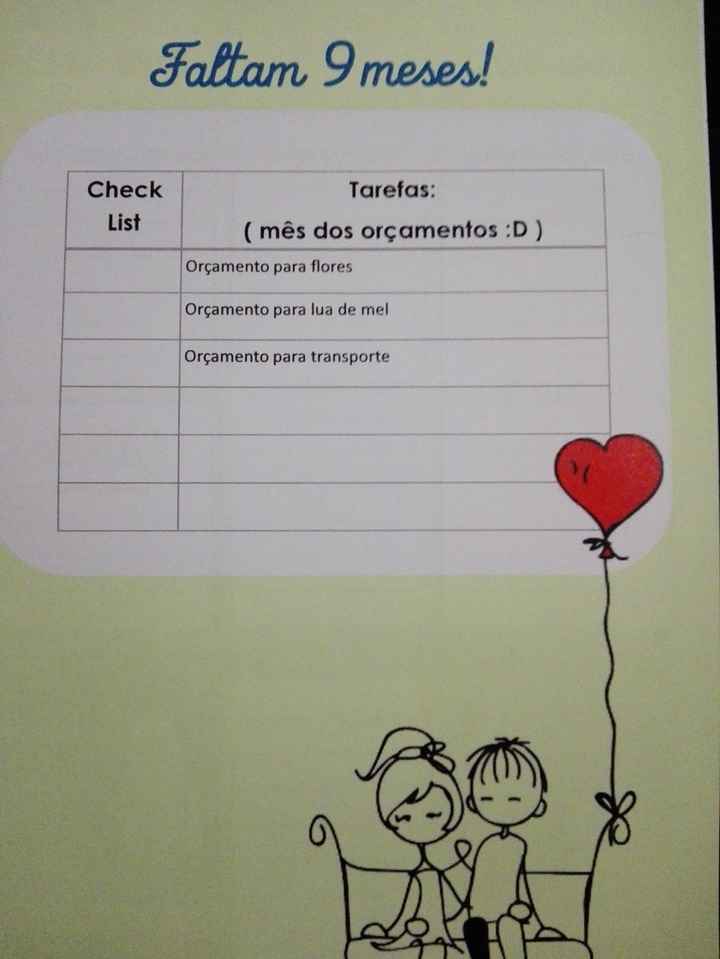 Faltam 9 meses!
Check
List
Tarefas:
( mês dos orçamentos :D )
Orçamento para flores
Orçamento para lua de mel
Orçamento para transporte